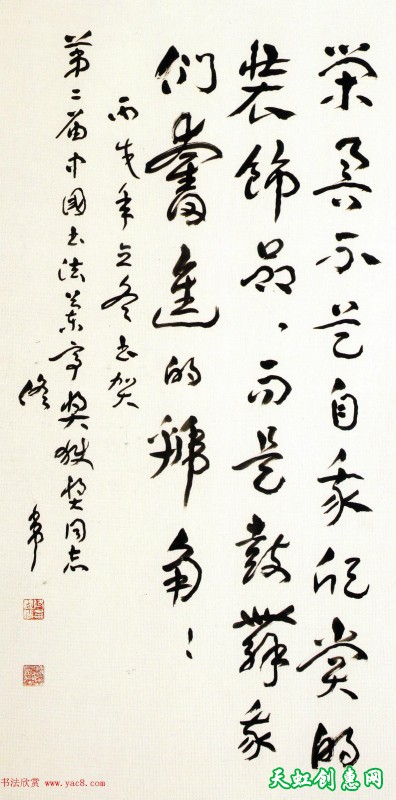 荣誉不是自我欣赏的
裝飾品、而是鼓舞我
们奮進的號角！
丙戌年立冬书贺
第二届中國书法兰亭奖获奖同志
佟韦
书法欣赏 www.yac8.com
天虹创惠网